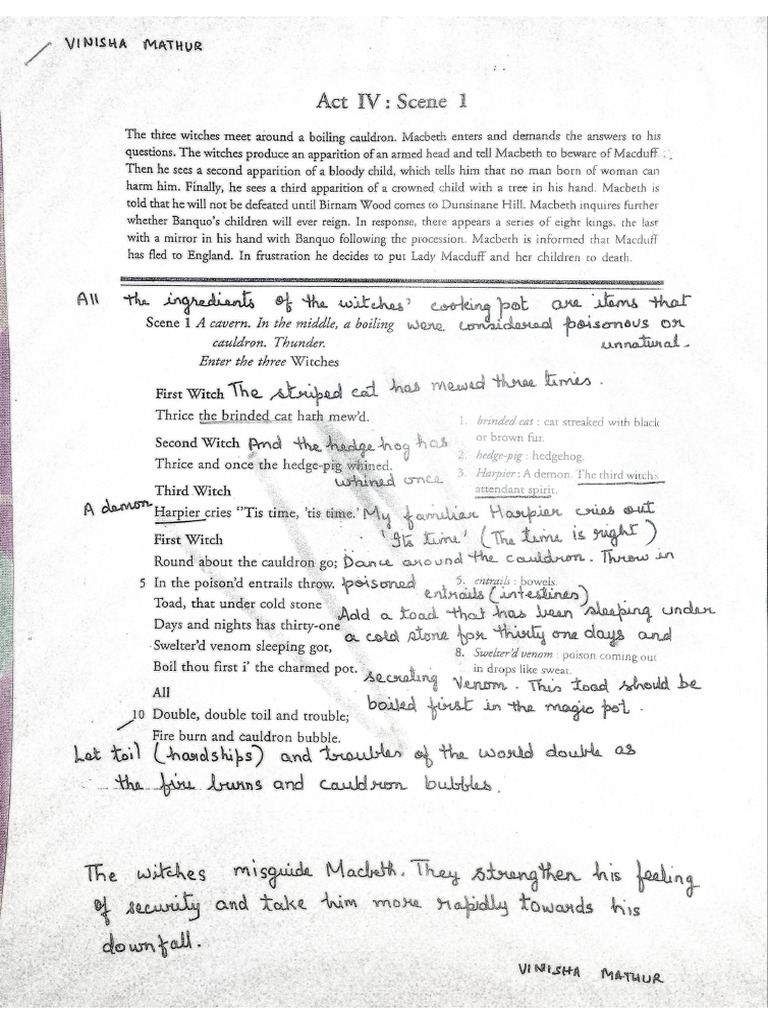 VINISHA MATHUR
Act IV : Scene 1
The three witches meet around a boiling cauldron. Macbeth enters and demands the answers to his
questions. The witches produce an apparition of an armed head and tell Macbeth to beware of Macduff.
Then he sees a second apparition of a bloody child, which tells him that no man born of woman can
harm him. Finally, he sees a third apparition of a crowned child with a tree in his hand. Macbeth is
told that he will not be defeated until Birnam Wood comes to Dunsinane Hill. Macbeth inquires further
whether Banquo's children will ever reign. In response, there appears a series of eight kings, the last
with a mirror in his hand with Banquo following the procession. Macbeth is informed that Macduff
has fled to England. In frustration he decides to put Lady Macduff and her children to death.
All the ingredients of the witches' cooking pot are items that
were considered poisonous or
unnatural.
Scene 1 A cavern. In the middle, a boiling
cauldron. Thunder.
Enter the three Witches
First Witch The striped cat has mewed three times.
Thrice the brinded cat hath mew'd.
1. brinded cat : cat streaked with black
or brown fur.
Second Witch And the hedge hog has
whined once
Thrice and once the hedge-pig whined.
2. hedge-pig : hedgehog.
3. Harpier : A demon. The third witch's
attendant spirit.
Third Witch
A demon
Harpier cries "'Tis time, 'tis time.' My familiar Harpier cries out
'Its time' (The time is right)
First Witch
Round about the cauldron go; Dance around the cauldron. Throw in
5 In the poison'd entrails throw. poisoned entrails (intestines)
5. entrails : bowels.
Toad, that under cold stone Add a toad that has been sleeping under
Days and nights has thirty-one a cold stone for thirty one days and
Swelter'd venom sleeping got,
8. Swelter'd venom : poison coming out
in drops like sweat.
Boil thou first i' the charmed pot. secreting Venom. This toad should be
boiled first in the magic pot.
All
10 Double, double toil and trouble;
Fire burn and cauldron bubble.
Let toil (hardships) and troubles of the world double as
the fire burns and cauldron bubbles.
The witches misguide Macbeth. They strengthen his feeling
of security and take him more rapidly towards his
downfall.
VINISHA MATHUR